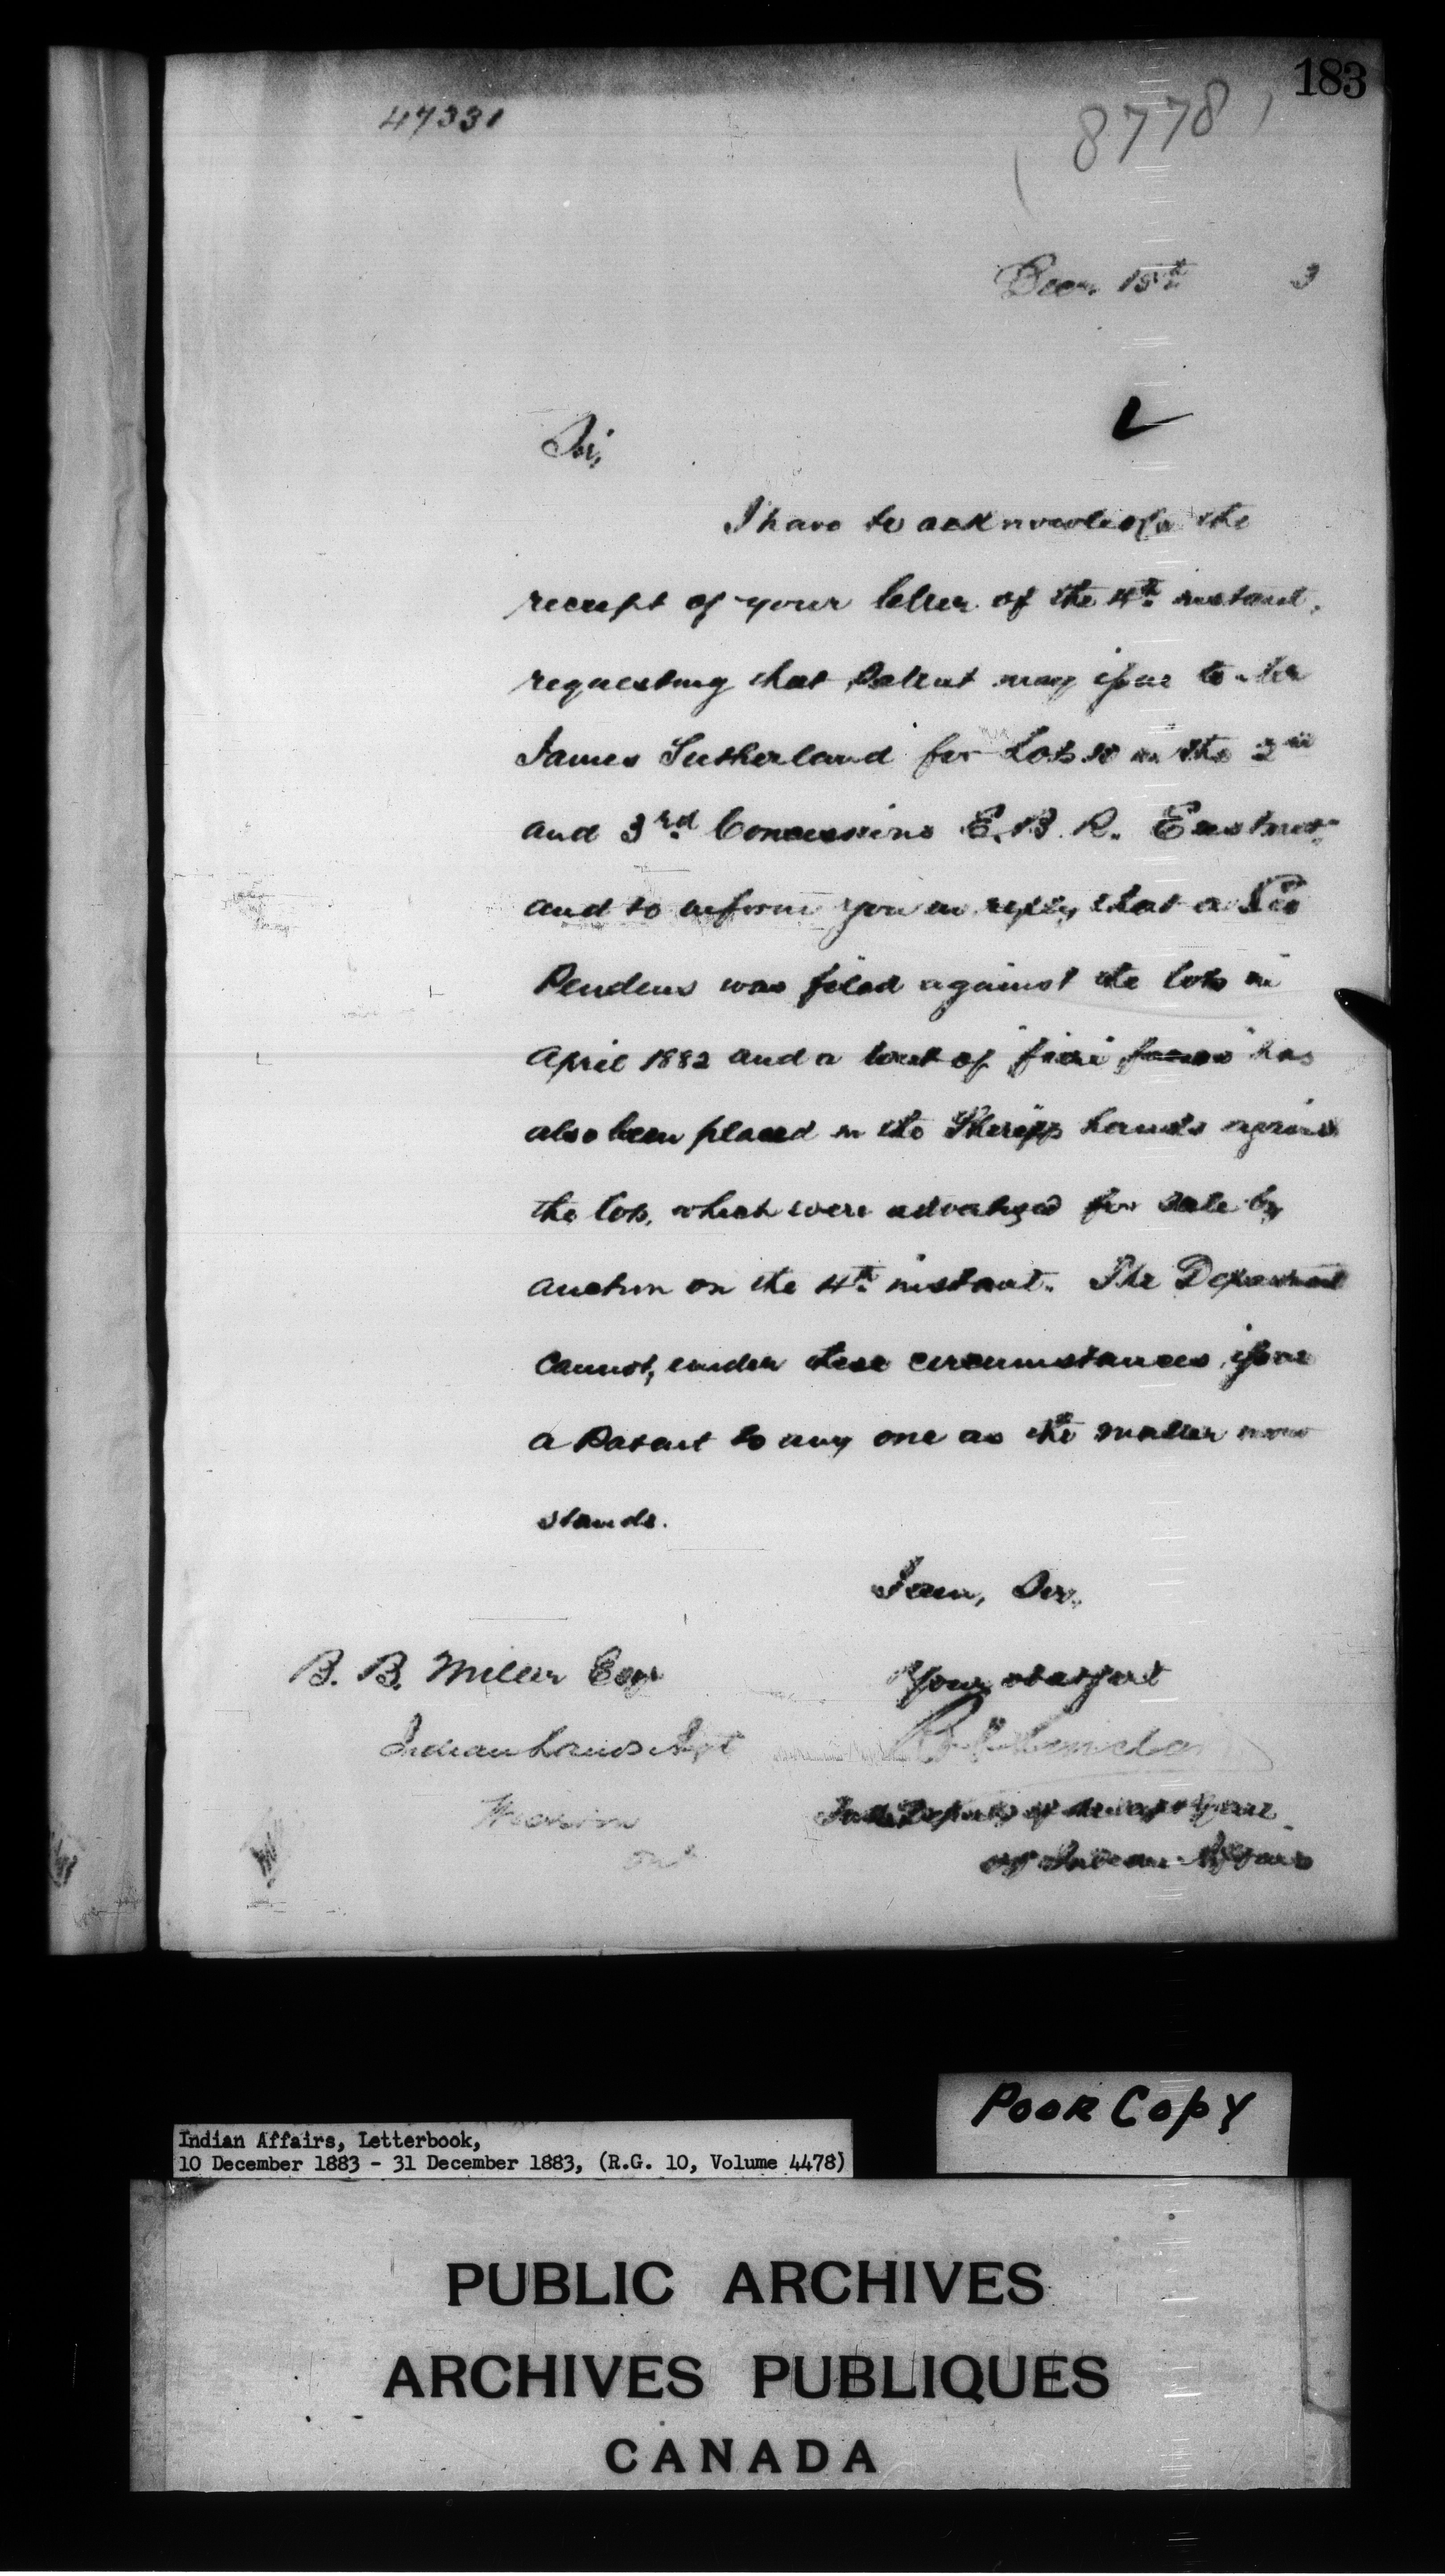 183
47331
8778
Decr. 15th 3
Sir,
I have to acknowledge the
receipt of your letter of the 4th instant,
requesting that Patent may issue to Mr
James Sutherland for Lots 10 in the 2nd
and 3rd Concessions E. B. R. Eastnor
and to inform you in reply that a Lis
Pendens was filed against the lots in
April 1882 and a writ of "fieri facias" has
also been placed in the Sheriffs hands against
the lots, which were advertized for sale by
auction on the 4th instant. The Department
cannot, under these circumstances issue
a Patent to any one as the matter now
stands.
I am, Sir,
B. B. Miller Esqr
Your obt servt
Indian Lands Agt
Wiarton
Ont
of Indian Affairs
Poor Copy
Indian Affairs, Letterbook,
10 December 1883 - 31 December 1883, (R.G. 10, Volume 4478)
PUBLIC ARCHIVES
ARCHIVES PUBLIQUES
CANADA